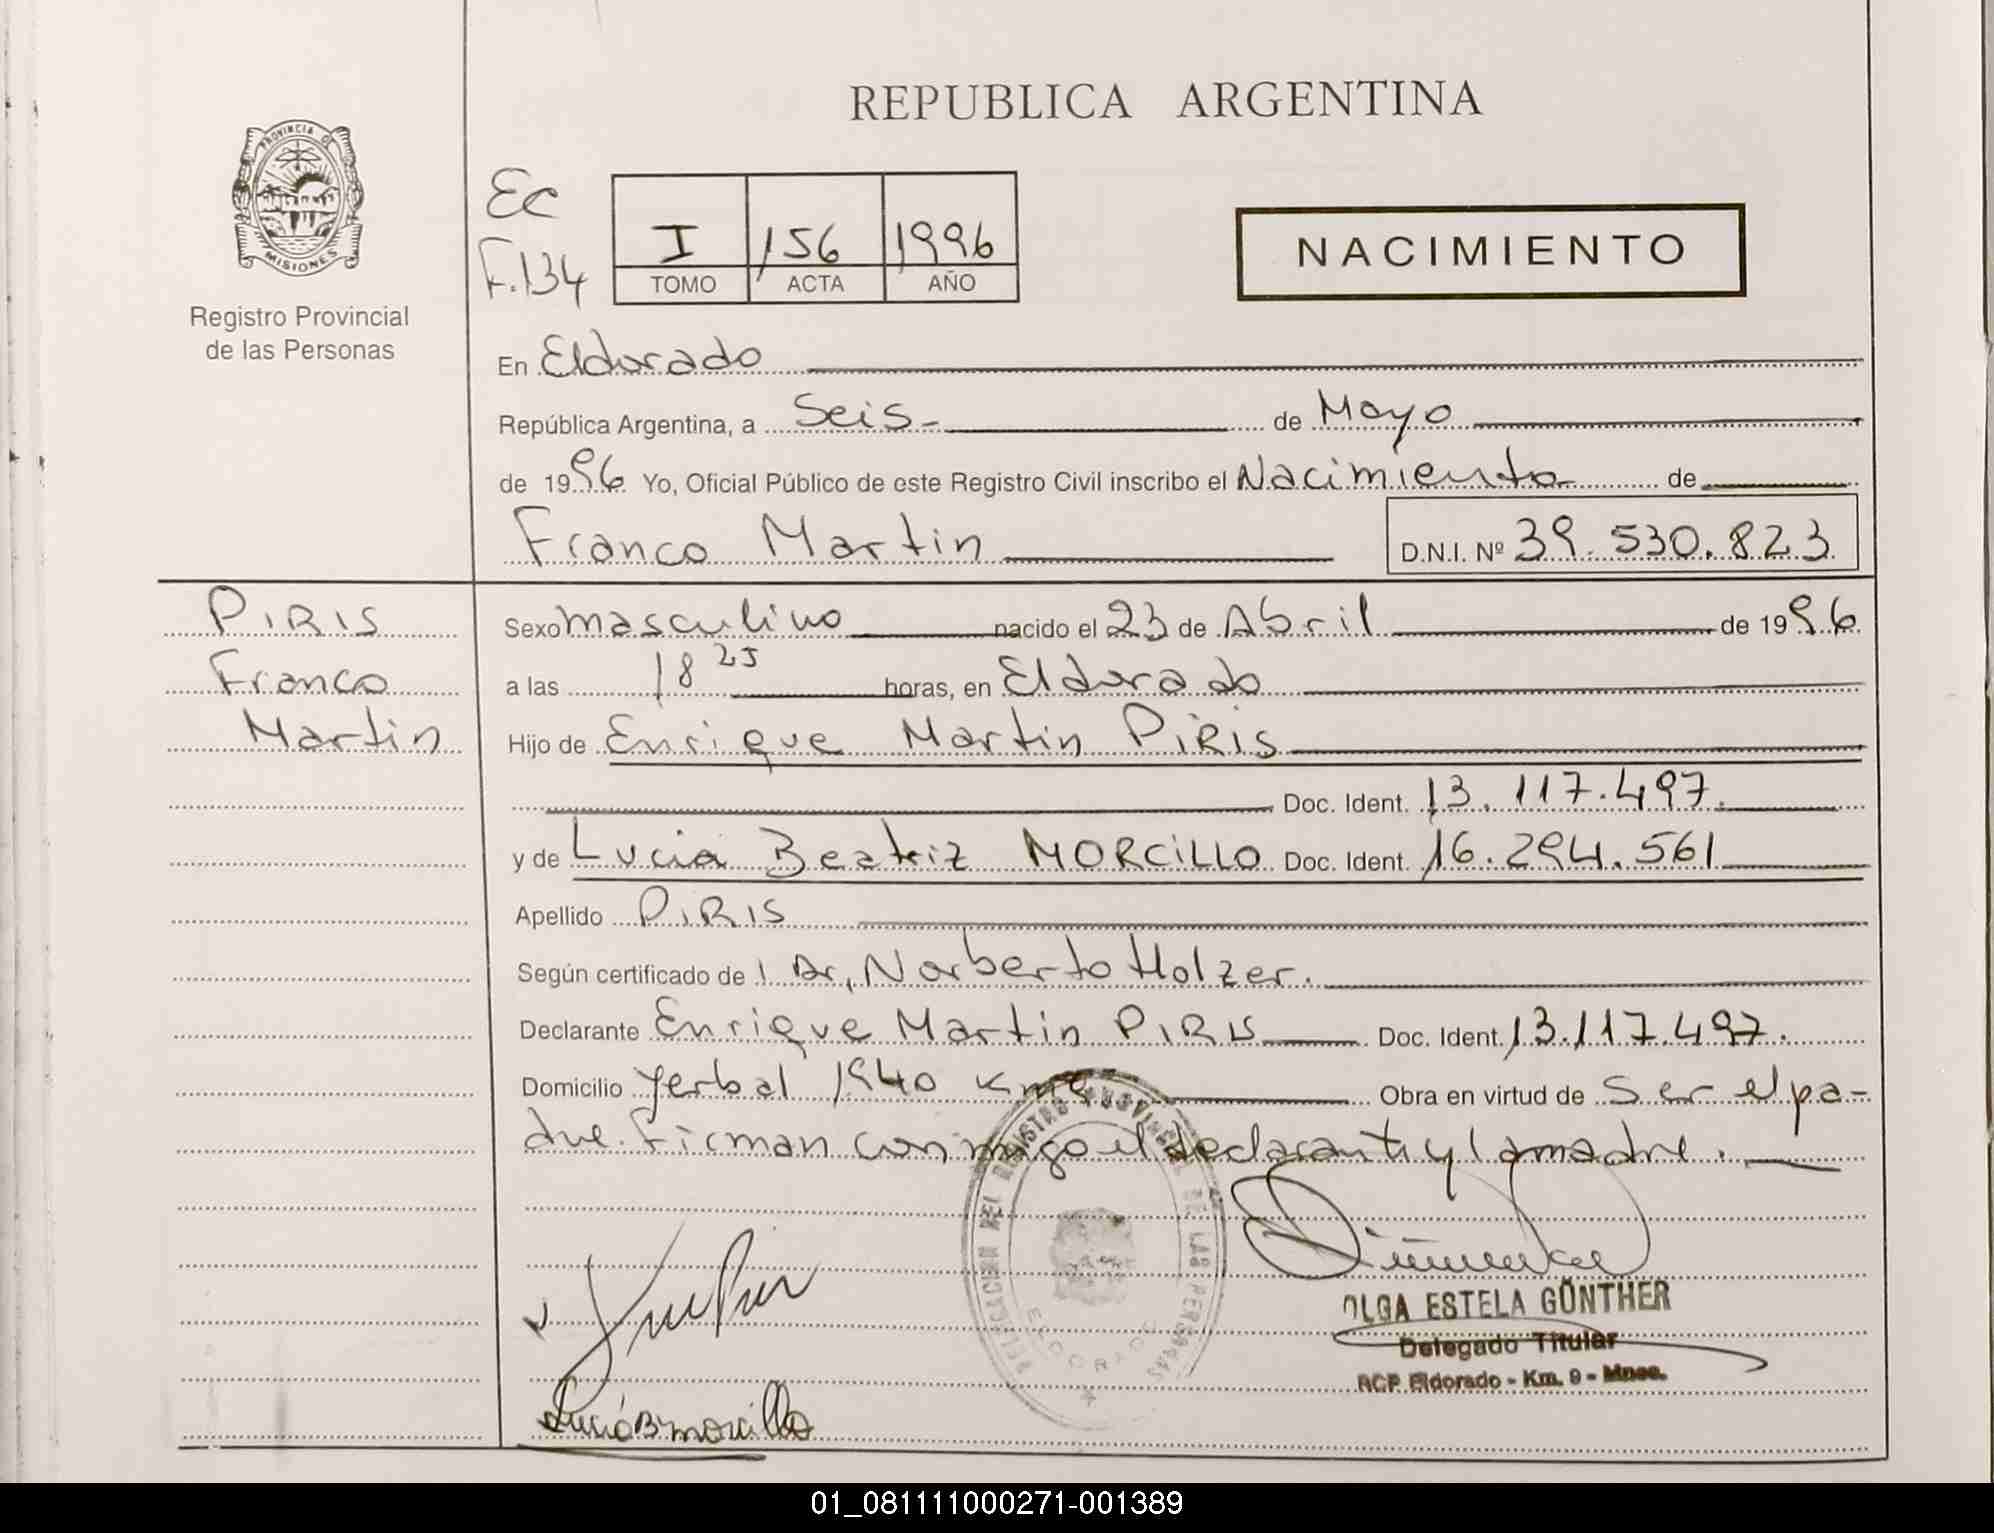 REPUBLICA ARGENTINA
PROVINCIA DE
MISIONES
Registro Provincial
de las Personas
Ec
F.134
I 156 1996
TOMO ACTA AÑO
NACIMIENTO
En Eldorado
República Argentina, a Seis de Mayo
de 1996 Yo, Oficial Público de este Registro Civil inscribo el Nacimiento de
Franco Martin D.N.I. Nº 39.530.823
PIRIS
Franco
Martin
Sexo masculino nacido el 23 de Abril de 1996
a las 18 25 horas, en Eldorado
Hijo de Enrique Martin PIRIS
Doc. Ident. 13.117.497.
y de Lucia Beatriz MORCILLO Doc. Ident. 16.294.561
Apellido PIRIS
Según certificado de Dr. Norberto Holzer.
Declarante Enrique Martin PIRIS Doc. Ident. 13.117.497.
Domicilio Yerbal 1940 Km 9. Obra en virtud de Ser el pa-
dre. Firman conmigo el declarante y la madre.
DELEGACION DEL REGISTRO PROVINCIAL DE LAS PERSONAS
ELDORADO
OLGA ESTELA GÜNTHER
Delegado Titular
RCP Eldorado - Km. 9 - Mnes.
Lucia B Morcillo
01_081111000271-001389